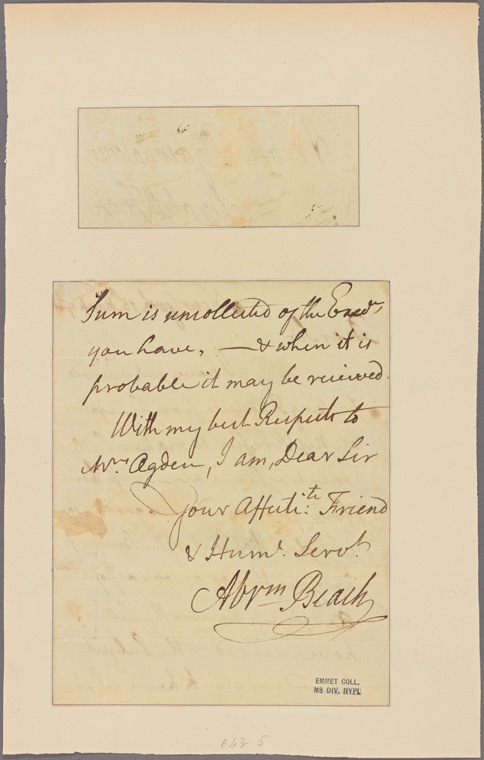 Sum is uncollected of the Exec.rs
you have, — & when it is
probable it may be received.
With my best Respects to
Mrs. Ogden, I am, Dear Sir
Your Affecti.te Friend
& Humb. Servt.
Abrm Beach
EMMET COLL.
MS DIV, NYPL
5